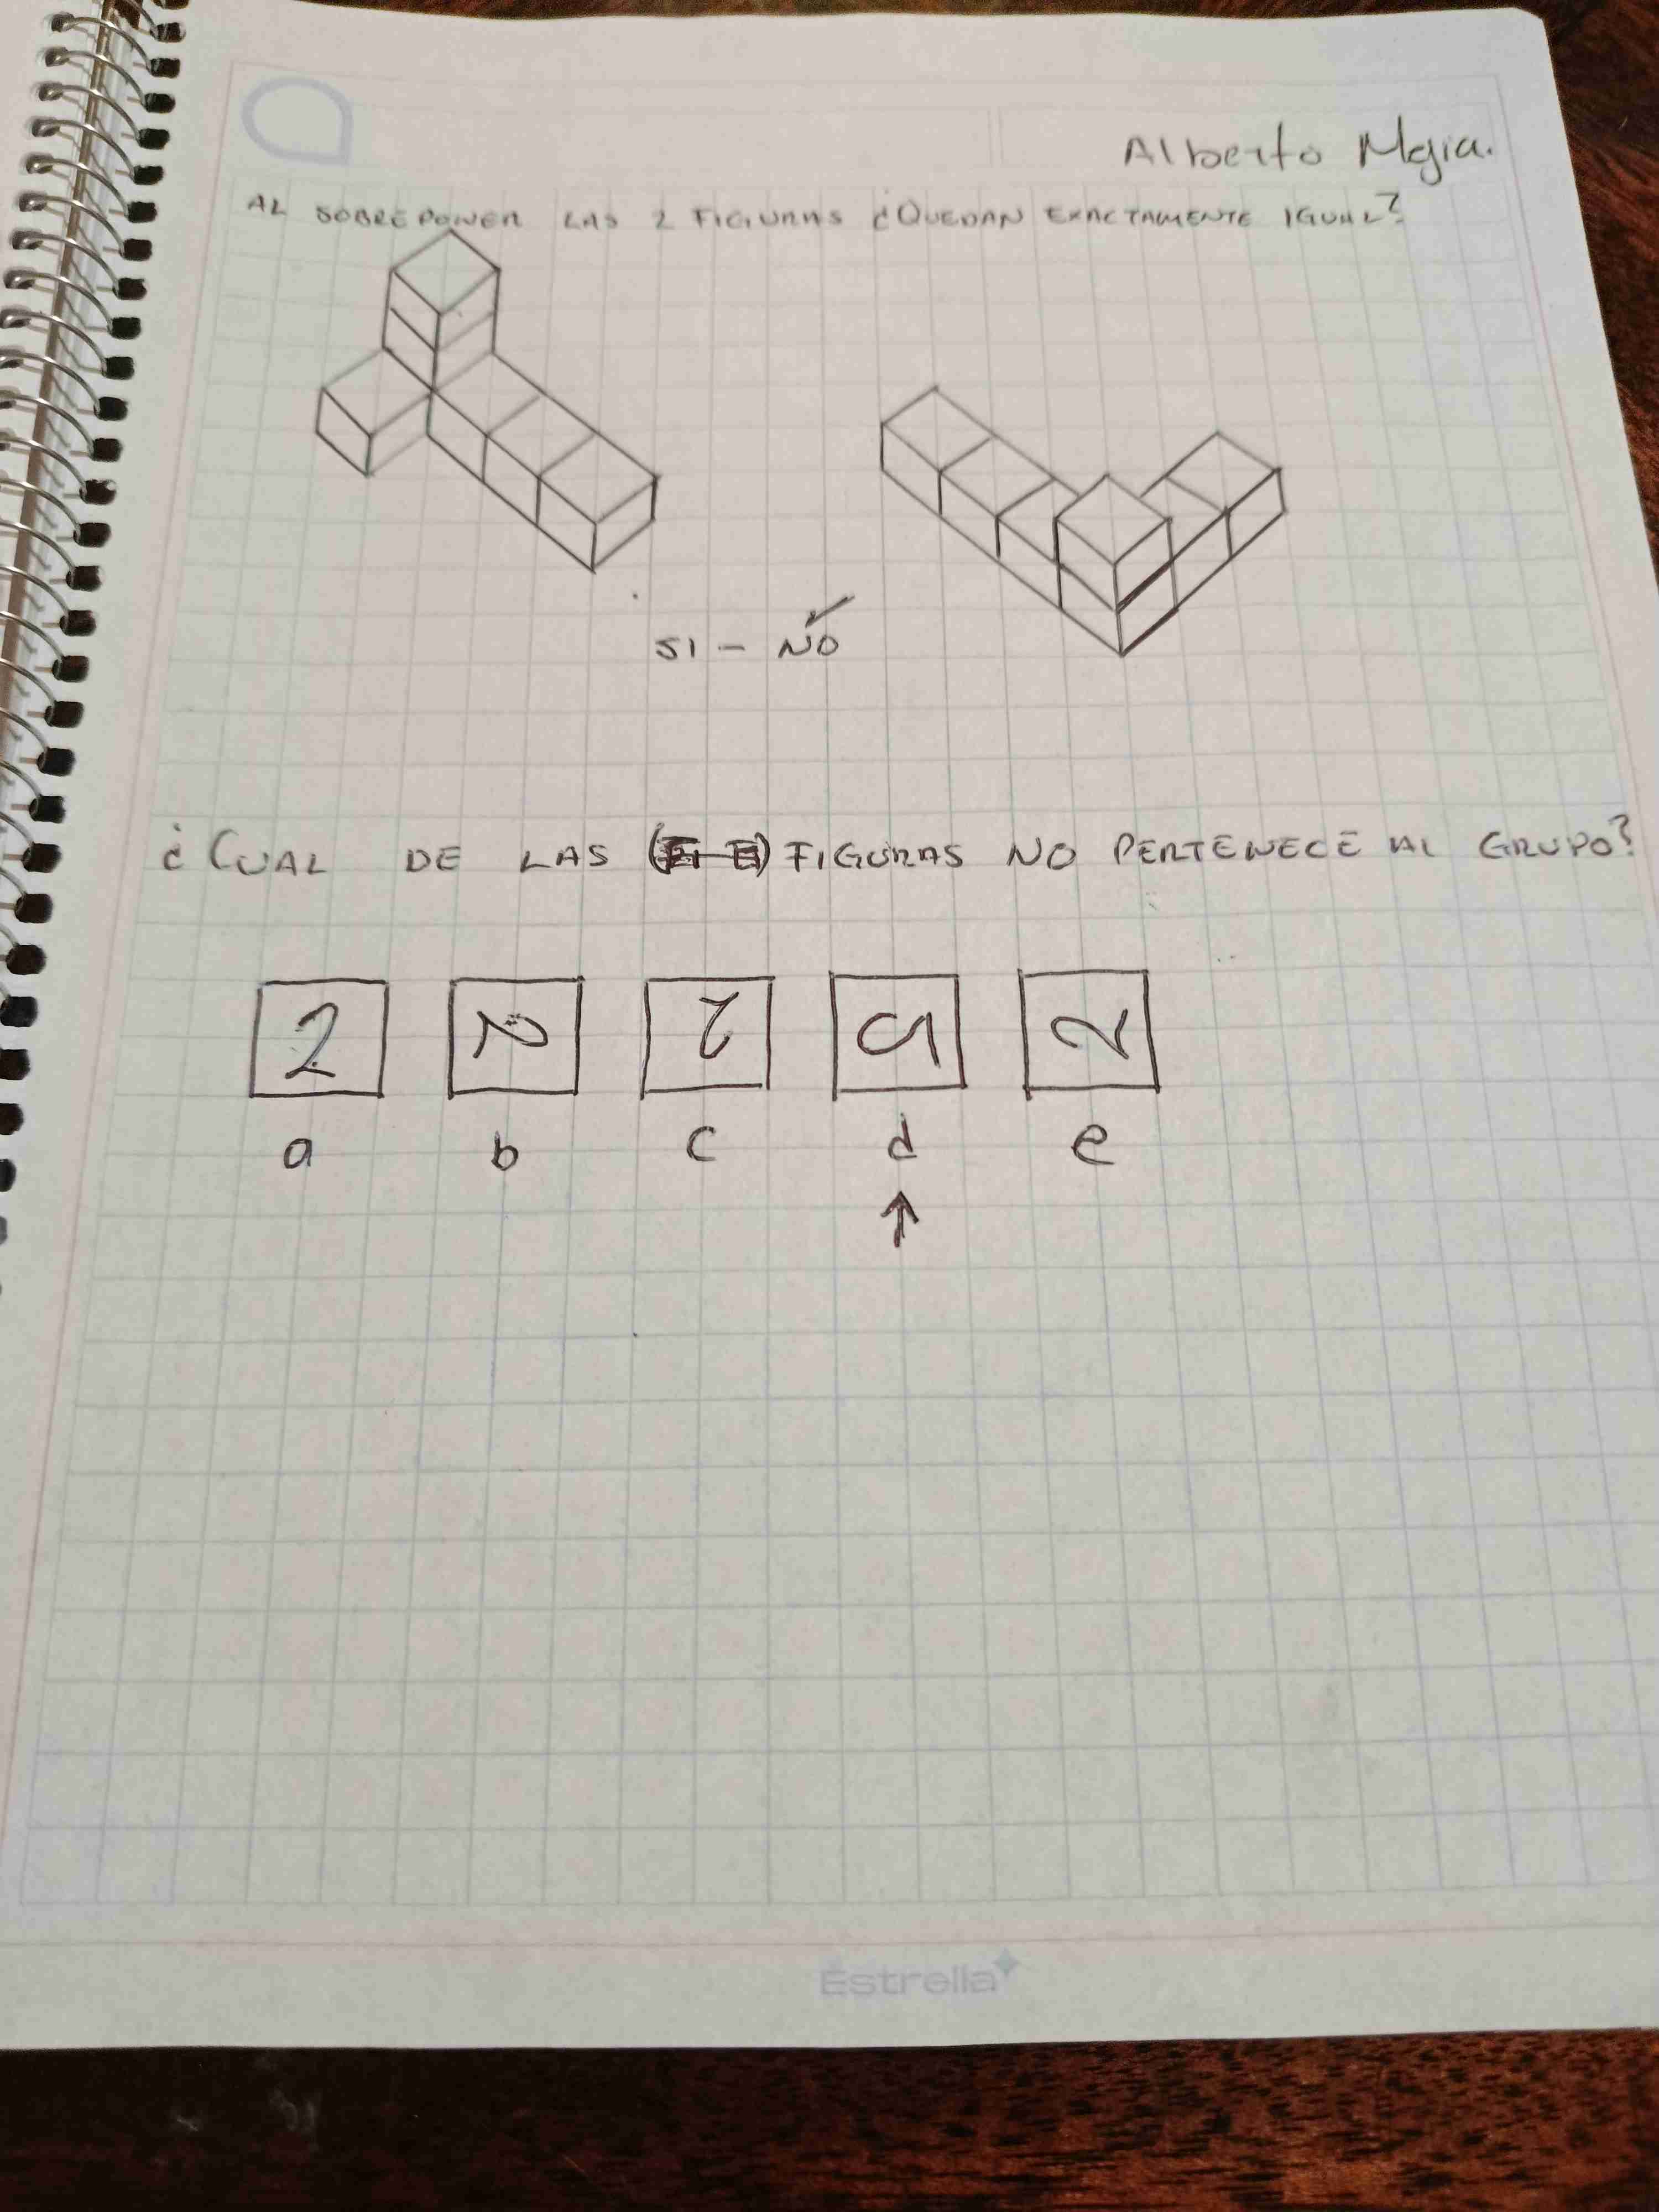 Alberto Mejia.
AL SOBREPONER LAS 2 FIGURAS ¿QUEDAN EXACTAMENTE IGUAL?
SI - NO
¿CUAL DE LAS FIGURAS NO PERTENECE AL GRUPO?
2 2 2 2 2
a b c d e
Estrella